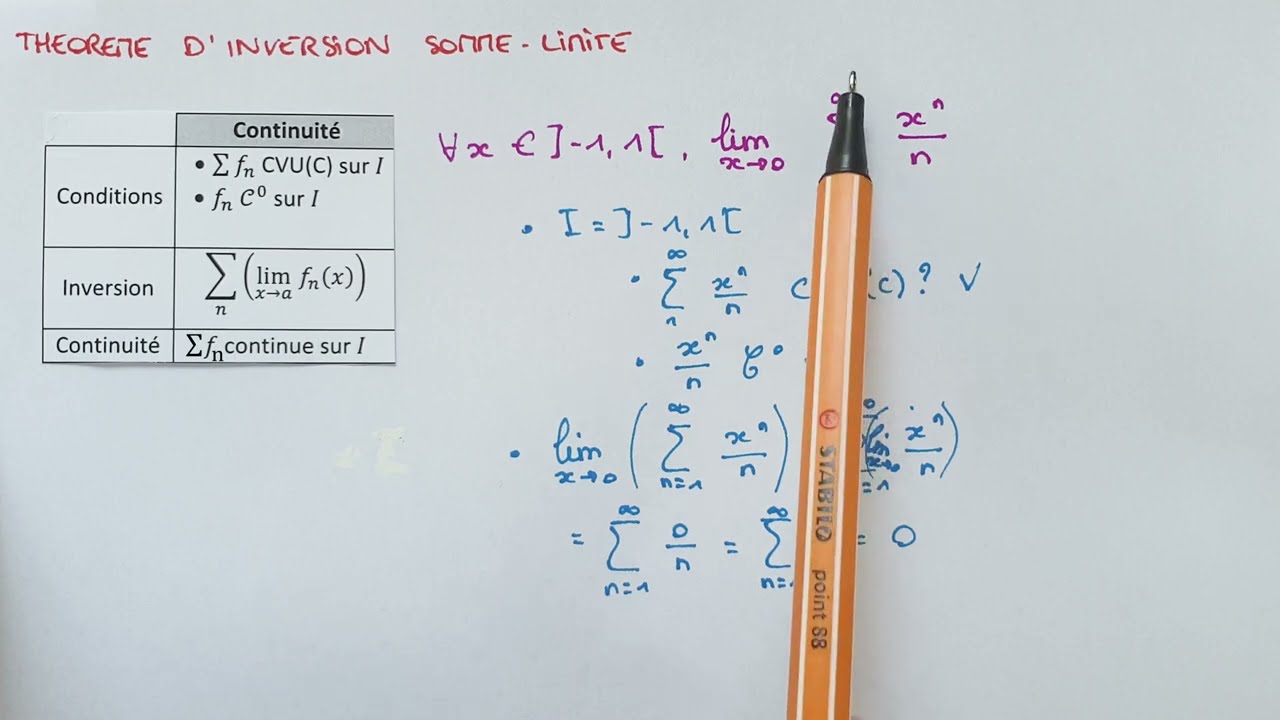 THEOREME D'INVERSION SOMME-LIMITE
Continuité
Conditions
• ∑ fₙ CVU(C) sur I
• fₙ C⁰ sur I
Inversion
∑ₙ (lim x→a fₙ(x))
Continuité
∑fₙcontinue sur I
∀x ∈ ]-1,1[, lim x→0 xⁿ/n
• I = ]-1,1[
• ∑ₙ^∞ xⁿ/n C (C) ? V
• xⁿ/n C⁰
• lim x→0 (∑ₙ₌₁^∞ xⁿ/n) xⁿ/n)
= ∑ₙ₌₁^∞ 0/n = ∑^∞ = 0
STABILO point 88